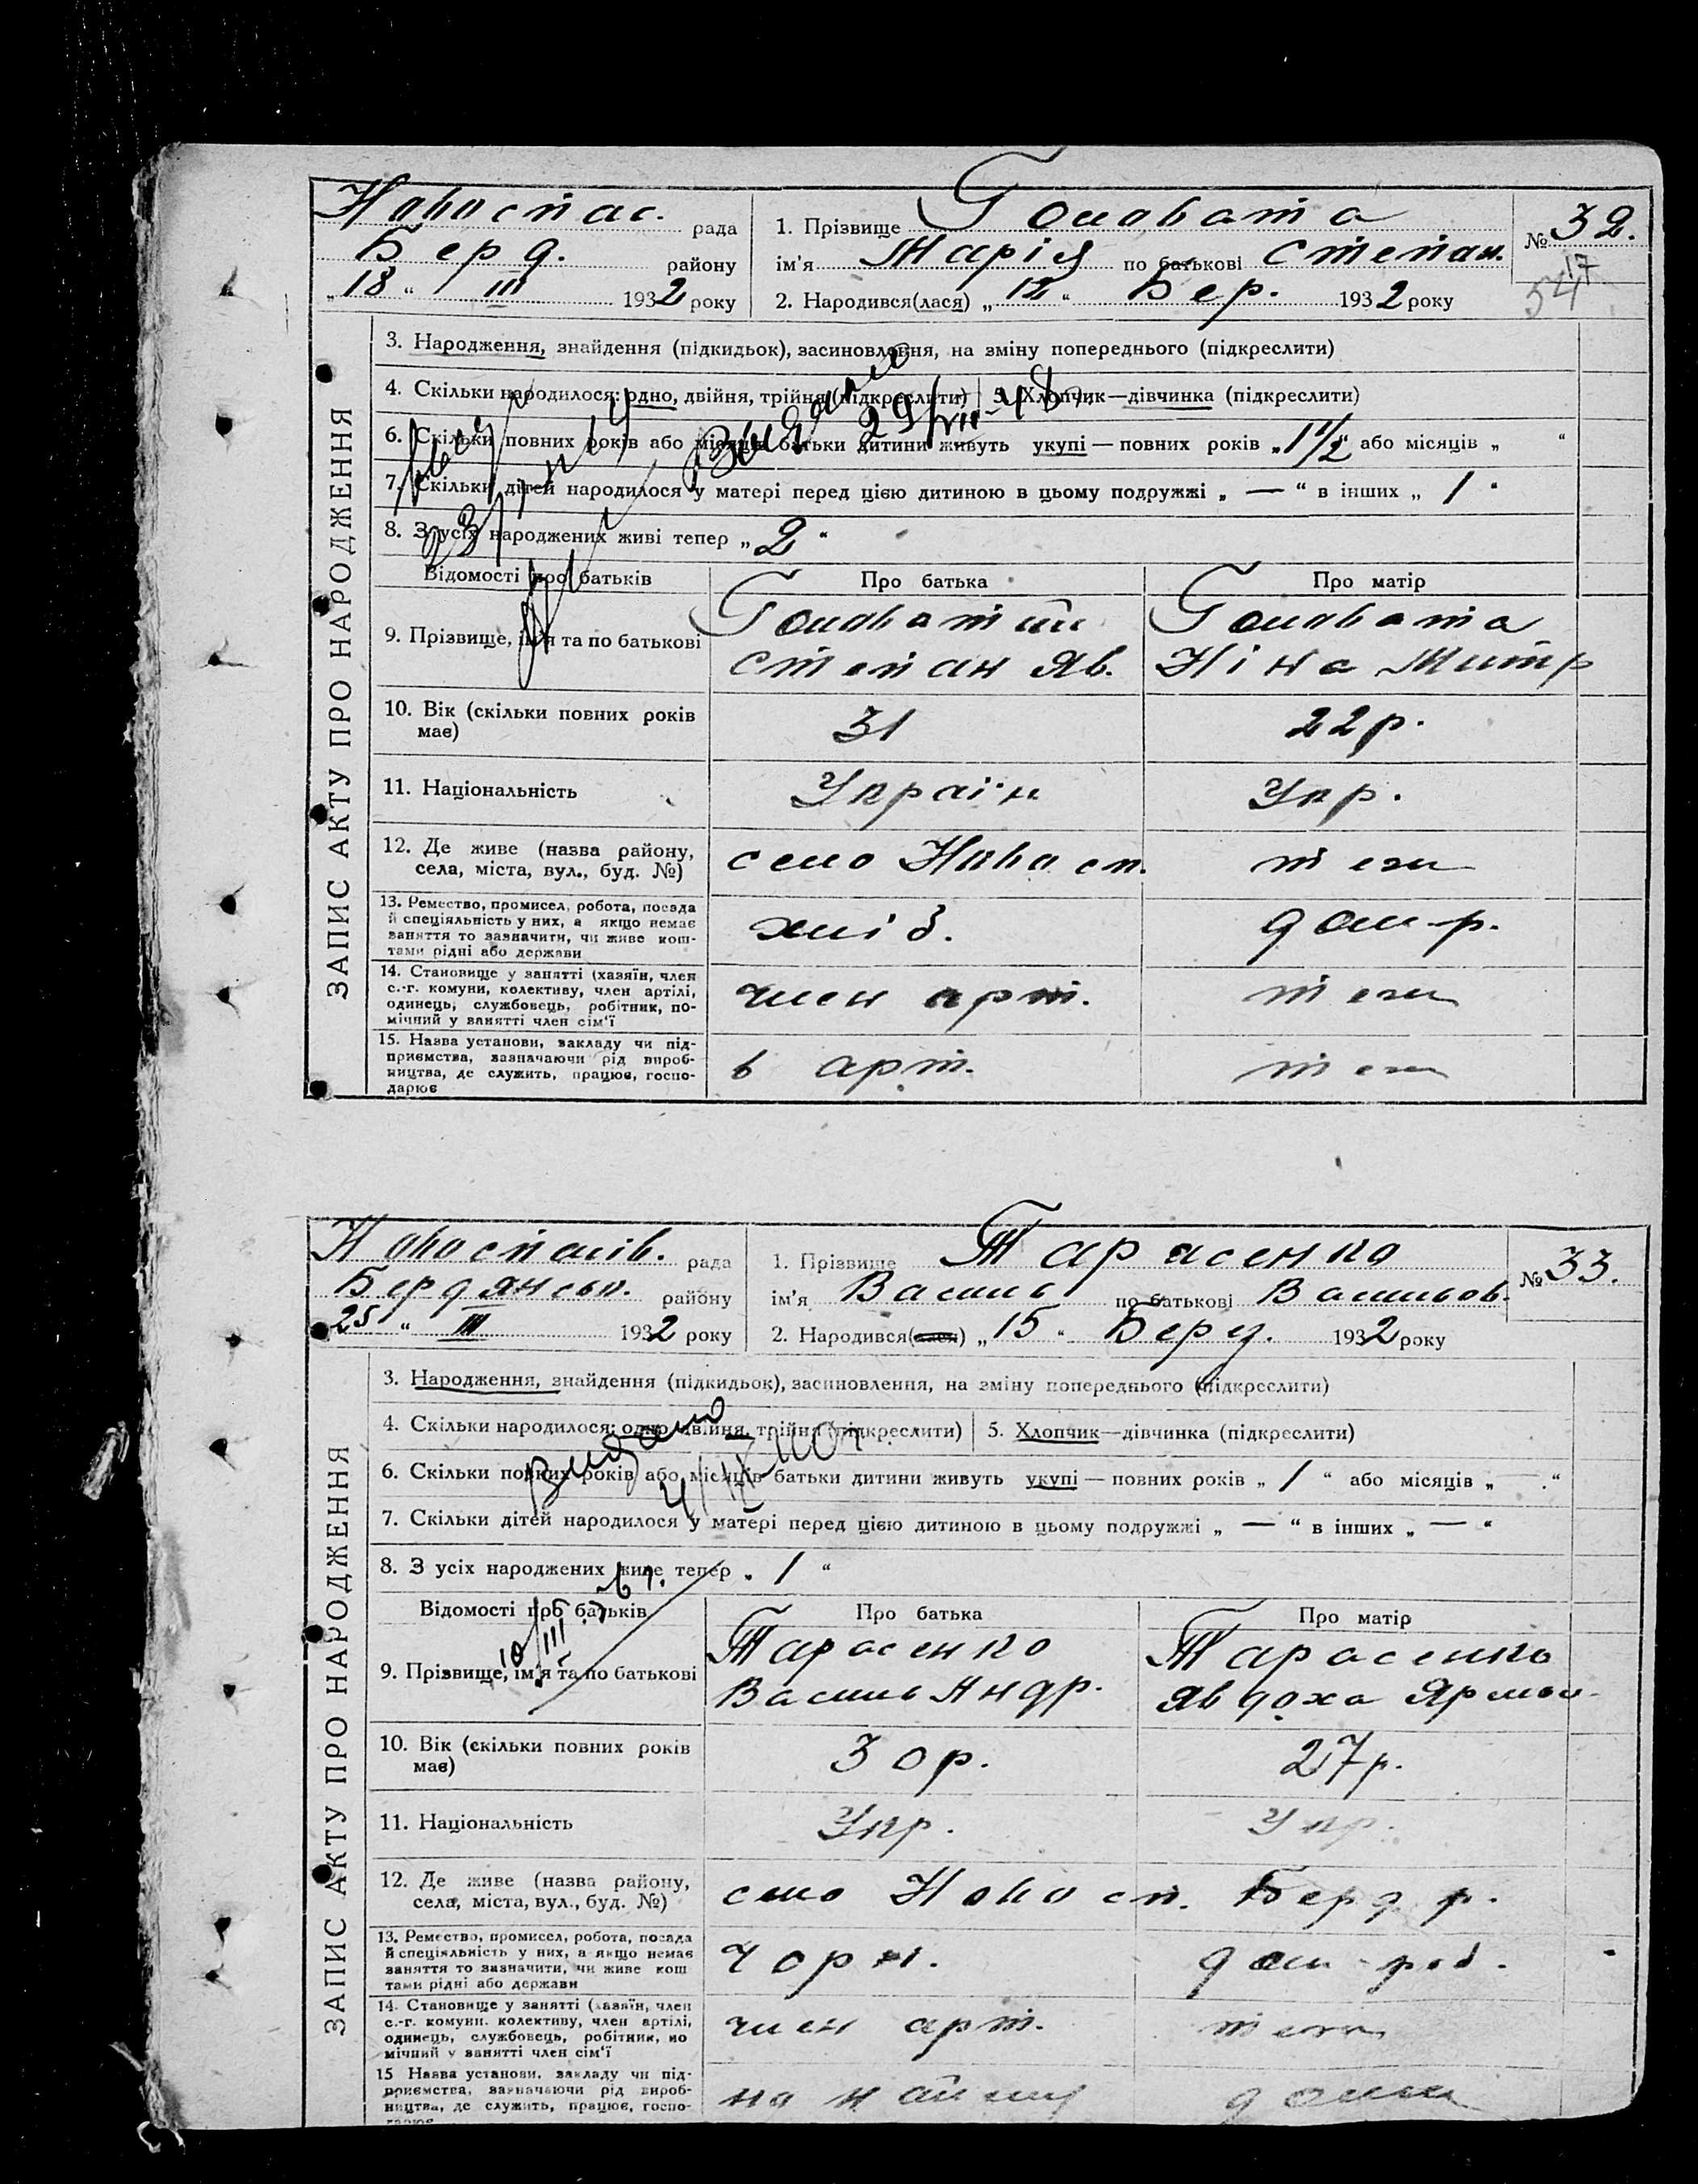 Новоспас. рада
Берд. району
„18“ III 1932 року
1. Прізвище Головата
ім'я Марія по батькові Степан.
2. Народився(лася) „12“ Бер. 1932 року
№ 32.
17
54
ЗАПИС АКТУ ПРО НАРОДЖЕННЯ
3. Народження, знайдення (підкидьок), засиновлення, на зміну попереднього (підкреслити)
4. Скільки народилося: одно, двійня, трійня (підкреслити) 5. Хлопчик—дівчинка (підкреслити)
6. Скільки повних років або місяців батьки дитини живуть укупі — повних років „1 1/2“ або місяців „ “
7. Скільки дітей народилося у матері перед цією дитиною в цьому подружжі „ — “ в інших „ 1 “
8. З усіх народжених живі тепер „ 2 “
Видано
29/VII-48
Відомості про батьків Про батька Про матір
9. Прізвище, ім'я та по батькові
Головатий
Степан Яв.
Головата
Ніна Митр
10. Вік (скільки повних років
має)
31 22 р.
11. Національність Україн Укр.
12. Де живе (назва району,
села, міста, вул., буд. №)
село Новосп. теж
13. Ремество, промисел, робота, посада
й спеціяльність у них, а якщо немає
заняття то зазначити, чи живе кош-
тами рідні або держави
хліб. дом-р.
14. Становище у занятті (хазяїн, член
с.-г. комуни, колективу, член артілі,
одинець, службовець, робітник, по-
мічний у занятті член сім'ї
член арт. теж
15. Назва установи, закладу чи під-
приємства, зазначаючи рід вироб-
ництва, де служить, працює, госпо-
дарює
в арт. теж
Новоспасів. рада
Бердянськ. району
25 “ III 1932 року
1. Прізвище Тарасенко
ім'я Василь по батькові Васильов.
2. Народився( ) „15“ Берез. 1932 року
№ 33.
ЗАПИС АКТУ ПРО НАРОДЖЕННЯ
3. Народження, знайдення (підкидьок), засиновлення, на зміну попереднього (підкреслити)
4. Скільки народилося: одно, двійня, трійня (підкреслити) 5. Хлопчик—дівчинка (підкреслити)
6. Скільки повних років або місяців батьки дитини живуть укупі — повних років „ 1 “ або місяців „ — “
7. Скільки дітей народилося у матері перед цією дитиною в цьому подружжі „ — “ в інших „ — “
8. З усіх народжених живе тепер „ 1 “
Видано
Відомості про батьків Про батька Про матір
9. Прізвище, ім'я та по батькові
Тарасенко
Василь Андр.
Тарасенко
Явдоха Ярмол.
10. Вік (скільки повних років
має)
30 р. 27 р.
11. Національність Укр. Укр.
12. Де живе (назва району,
села, міста, вул., буд. №)
село Новосп. Берд р.
13. Ремество, промисел, робота, посада
й спеціяльність у них, а якщо немає
заняття то зазначити, чи живе кош
тами рідні або держави
чорн. дом-роб.
14. Становище у занятті (хазяїн, член
с.-г. комуни. колективу, член артілі,
одинець, службовець, робітник, по
мічний у занятті член сім'ї
член арт. теж
15 Назва установи, закладу чи під-
приємства, зазначаючи рід вироб-
ництва, де служить, працює, госпо-
дарює